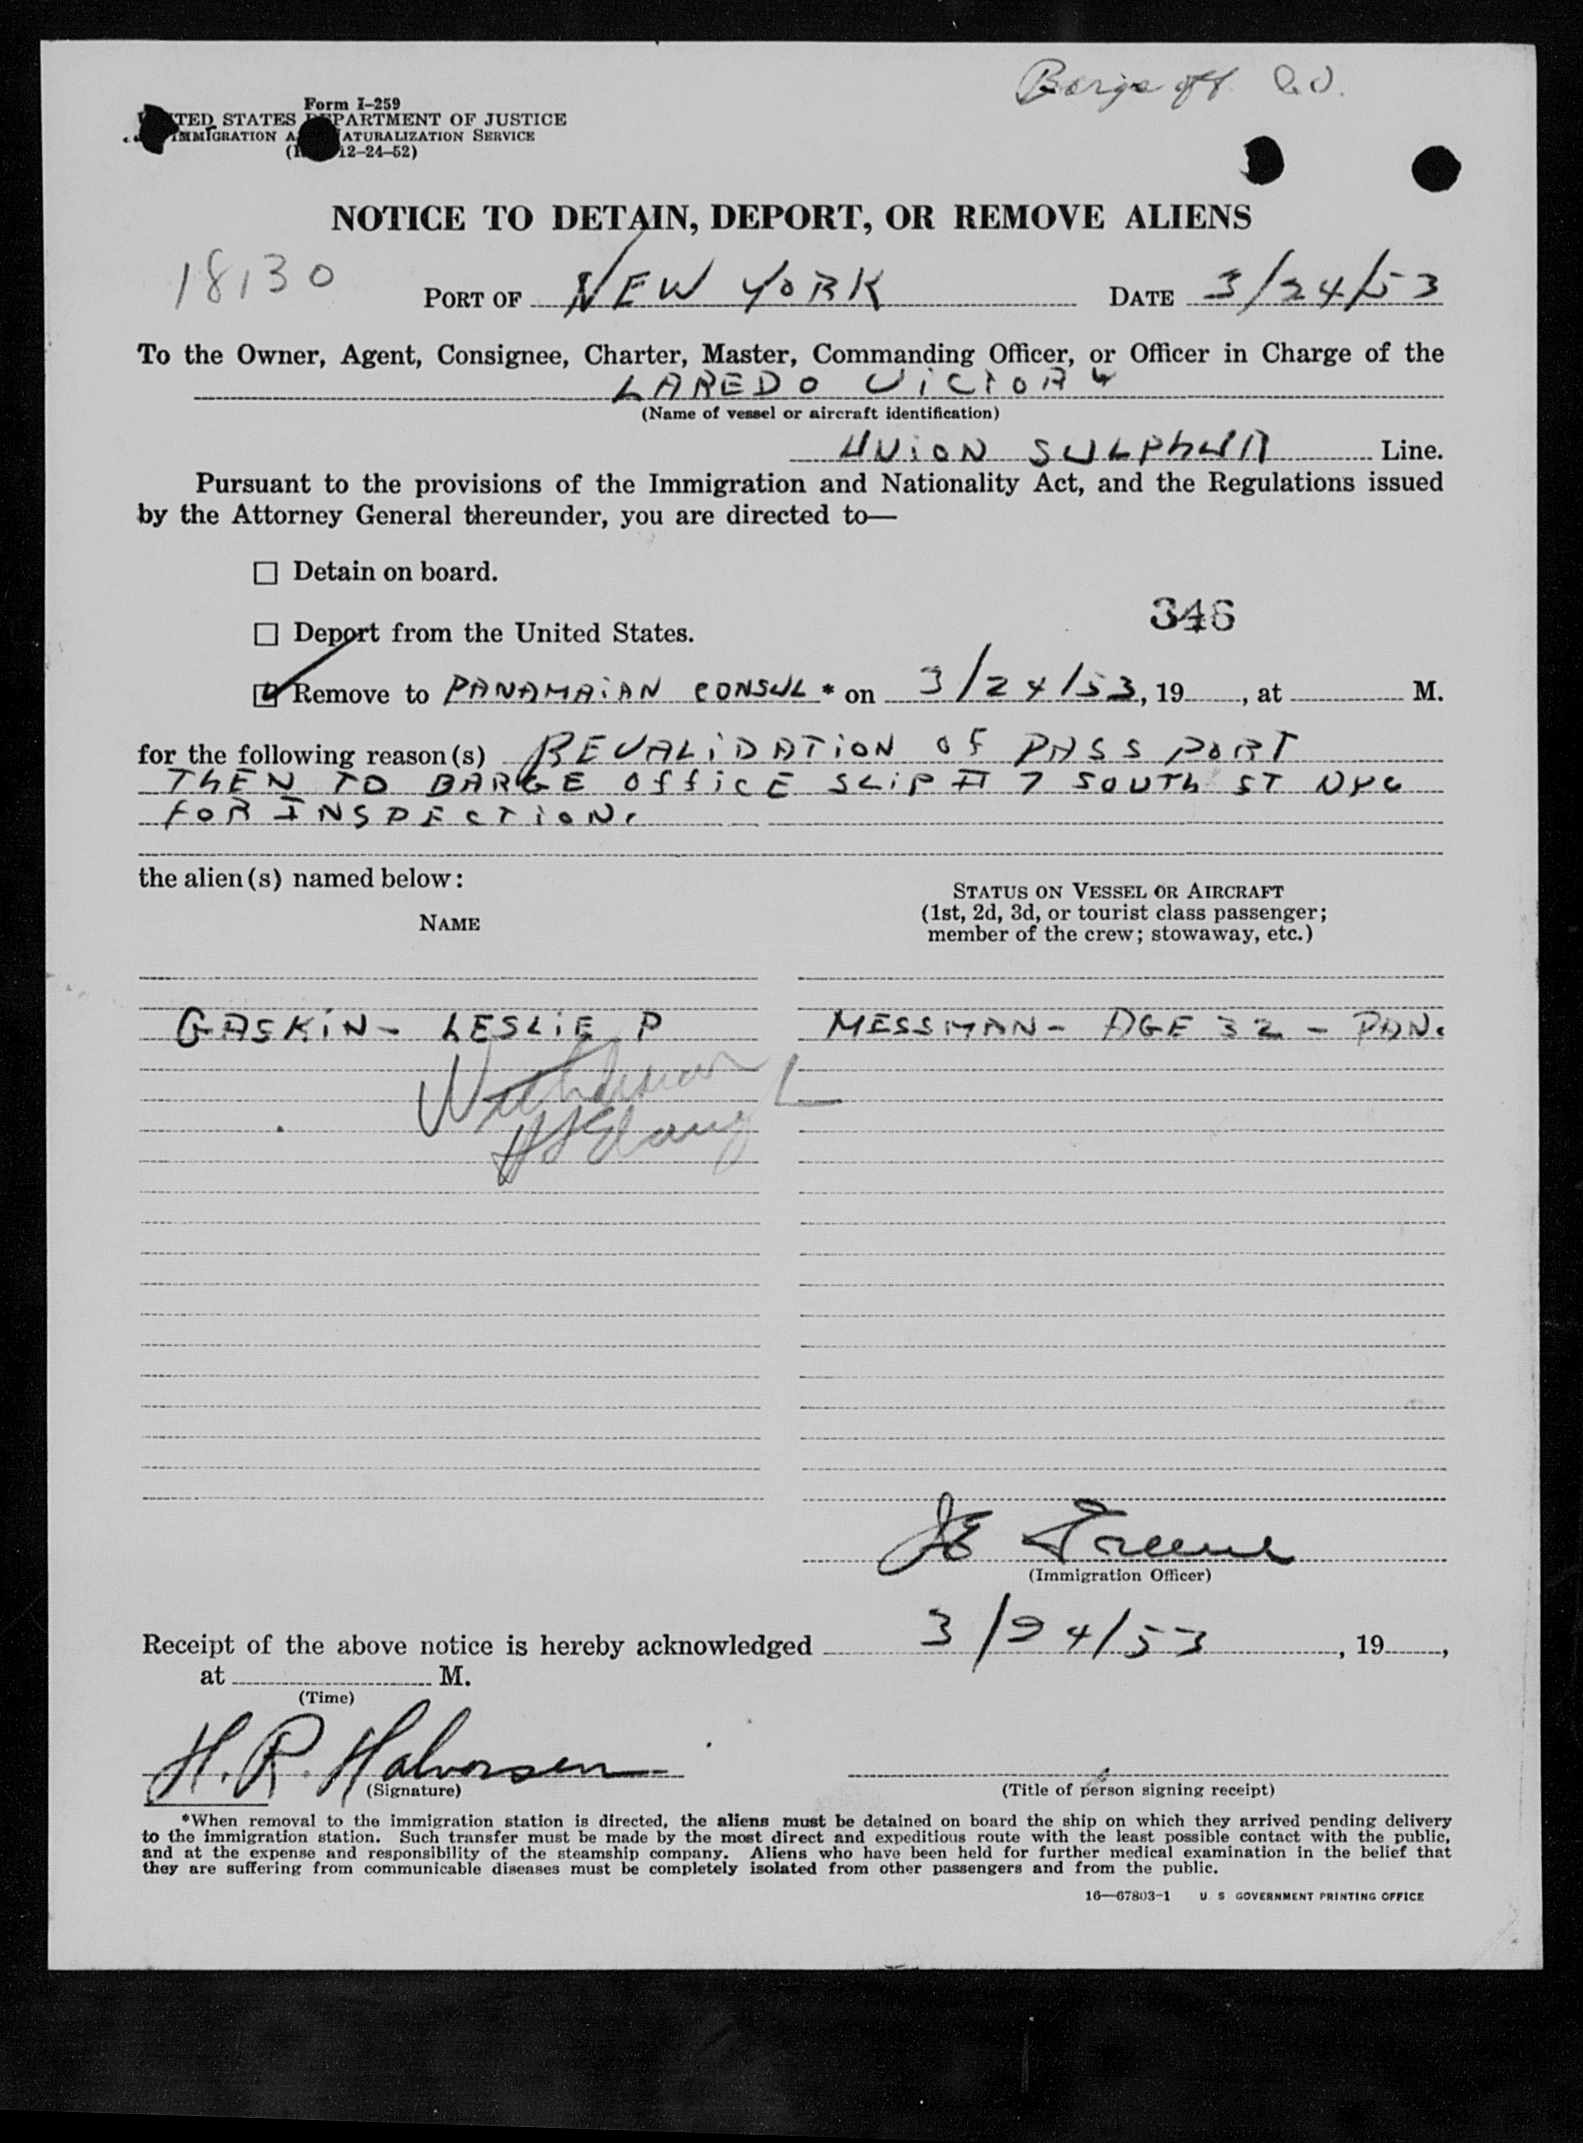 Barge off.
Form I-259
TED STATES DEPARTMENT OF JUSTICE
IMMIGRATION A NATURALIZATION SERVICE
12-24-52)
NOTICE TO DETAIN, DEPORT, OR REMOVE ALIENS
18130
PORT OF NEW YORK DATE 3/24/53
To the Owner, Agent, Consignee, Charter, Master, Commanding Officer, or Officer in Charge of the
LAREDO VICTORY
(Name of vessel or aircraft identification)
UNION SULPHUR Line.
Pursuant to the provisions of the Immigration and Nationality Act, and the Regulations issued
by the Attorney General thereunder, you are directed to—
☐ Detain on board.
346
☐ Deport from the United States.
☑ Remove to PANAMAIAN CONSUL * on 3/24/53, 19 , at M.
for the following reason(s) REVALIDATION OF PASSPORT
THEN TO BARGE OFFICE SLIP # 7 SOUTH ST NYC
FOR INSPECTION.
the alien(s) named below:
STATUS ON VESSEL OR AIRCRAFT
(1st, 2d, 3d, or tourist class passenger;
member of the crew; stowaway, etc.)
NAME
GASKIN- LESLIE P MESSMAN- AGE 32 - PAN.
Withdrawn
JE Greene
(Immigration Officer)
Receipt of the above notice is hereby acknowledged 3/24/53, 19 ,
at M.
(Time)
H. R. Halvorsen
(Signature) (Title of person signing receipt)
*When removal to the immigration station is directed, the aliens must be detained on board the ship on which they arrived pending delivery
to the immigration station. Such transfer must be made by the most direct and expeditious route with the least possible contact with the public,
and at the expense and responsibility of the steamship company. Aliens who have been held for further medical examination in the belief that
they are suffering from communicable diseases must be completely isolated from other passengers and from the public.
16—67803-1 U S GOVERNMENT PRINTING OFFICE